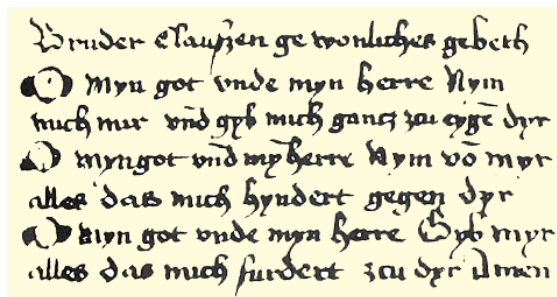 Bruder Clauszen gewonliches gebeth
O Myn got vnde myn herre Nym
mich mir vnd̄ gyb mich gancz zcu eygē dyr
O myngot vnd̄ mȳ herre Nym vō myr
alles das mich hyndert gegen dyr
O Myn got vnde myn herre Gyb myr
alles das mich furdert zcu dyr Amen